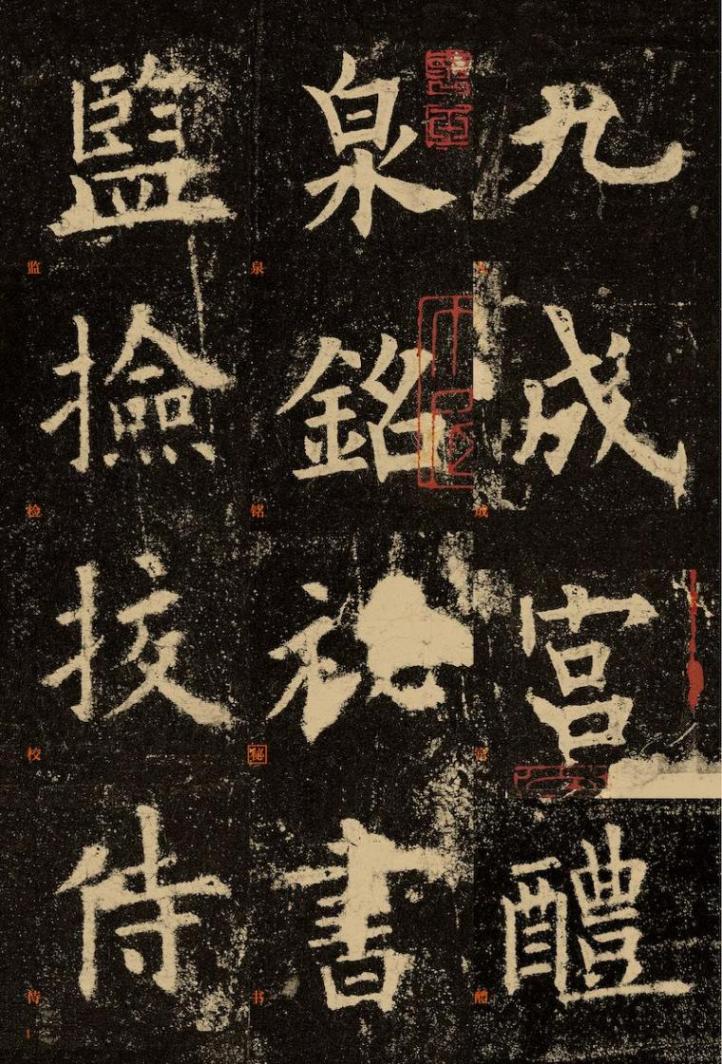 九成宮醴
泉銘祕書
監撿挍侍
成
醴
泉
铭
秘
书
监
检
校
侍
1